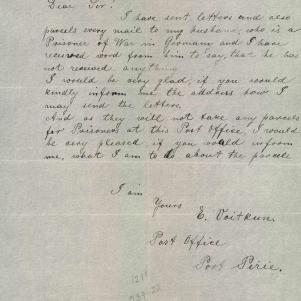 Dear Sir:
I have sent letters and also
parcels every mail to my husband, who is a
Prisoner of War in Germany and I have
received word from him to say, that he has
not received any thing.
I would be very glad, if you would
kindly inform me the address how I
may send the letters.
And as they will not take any parcels
for Prisoners at this Post Office, I would
be very pleased, if you would inform
me, what I am to do about the parcels
I am
Yours
E. Voitkun.
Post Office
Port Pirie.